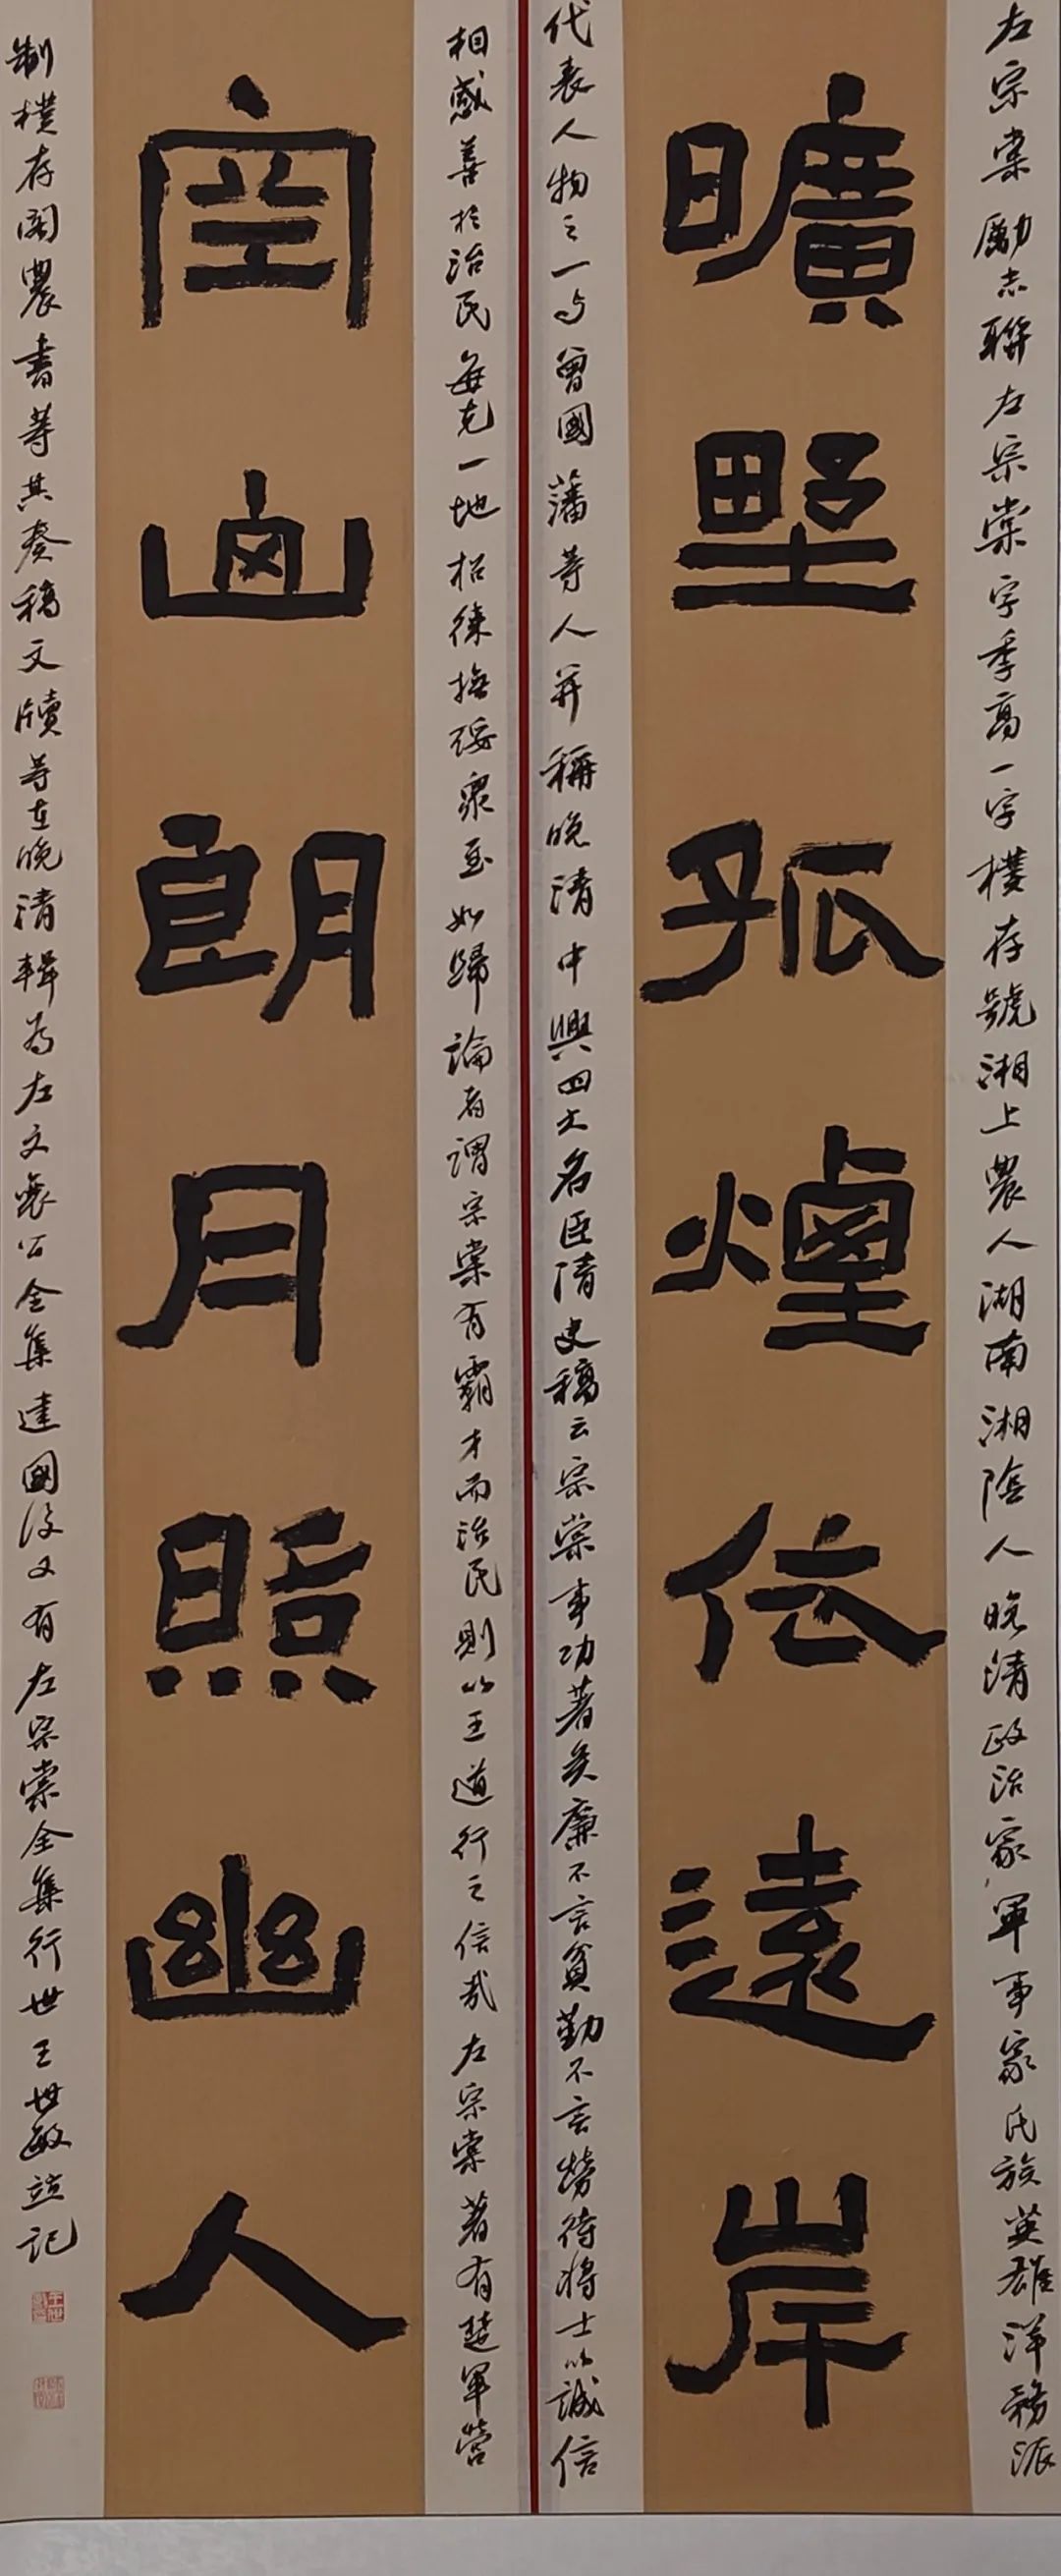 左宗棠勵志聯左宗棠字季高一字樸存號湘上農人湖南湘陰人晚清政治家軍事家民族英雄洋務派
曠野孤煙依遠岸
代表人物之一与曾國藩等人并稱晚清中興四大名臣清史稿云宗棠事功著矣廉不言貧勤不言勞待將士以誠信
相感善於治民每克一地招徠撫綏衆至如歸論者謂宗棠有霸才而治民則以王道行之信哉左宗棠著有楚軍營
空山朗月照幽人
制樸存閣農書等其奏稿文牘等在晚清輯為左文襄公全集建國後又有左宗棠全集行世王世敏并記